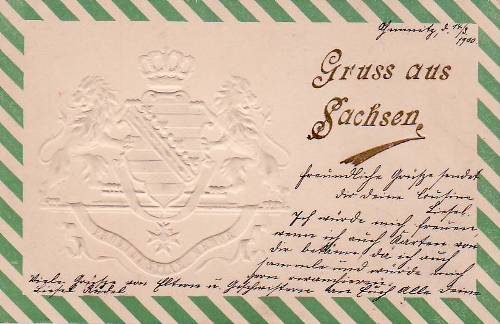 Chemnitz, d. 14/3.
1900.
Gruss aus
Sachsen
Freundliche Grüße sendet
dir deine Cousine
Liesel.
Ich würde mich freuen
wenn ich auch Karten von
dir bekäme, da ich auch
sammle und würde mich
gern revanchieren.
Viele Grüße von Eltern und Geschwistern an Euch Alle Deine
Liesel